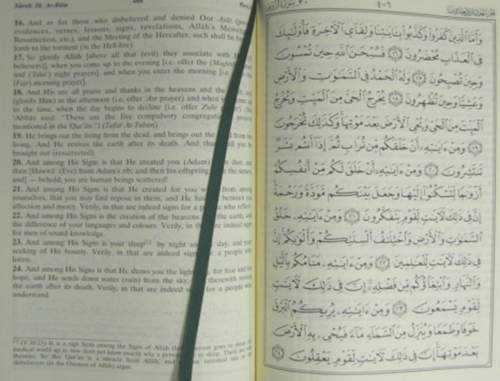 Sûrah 30. Ar-Rûm
16. And as for those who disbelieved and denied Our Ayât (proofs,
evidences, verses, lessons, signs, revelations, Allâh's Messen
Resurrection, etc.), and the Meeting of the Hereafter, such shall be
forth to the torment (in the Hell-fire).
17. So glorify Allâh [above all that (evil) they associate with
believers], when you come up to the evening [i.e. offer the (Maghrib)
and ('Ishâ') night prayers], and when you enter the morning [i.e.
(Fajr) morning prayer].
18. And His are all praise and thanks in the heavens and the earth,
(glorify Him) in the afternoon (i.e. offer 'Asr prayer) and when you
to the time, when the day begins to decline (i.e. offer Zuhr
'Abbâs said: "These are the five compulsory congregational
mentioned in the Qur'ân.") (Tafsir At-Tabari)
19. He brings out the living from the dead, and brings out the from the
living. And He revives the earth after its death. And thus you be
brought out (resurrected).
20. And among His Signs is that He created you (Adam) dust, and
then [Hawwâ' (Eve) from Adam's rib, and then his offspring the
and] — behold, you are human beings scattered!
21. And among His Signs is that He created for you from among
yourselves, that you may find repose in them, and He has between you
affection and mercy. Verily, in that are indeed signs for a people who reflect.
22. And among His Signs is the creation of the heavens the earth, and
the difference of your languages and colours. Verily, in that are indeed signs
for men of sound knowledge.
23. And among His Signs is your sleep by night and day, and your
seeking of His Bounty. Verily, in that are indeed signs for a people who
listen.
24. And among His Signs is that He shows you the lightning, for fear and
hope, and He sends down water (rain) from the sky, and therewith revives
the earth after its death. Verily, in that are indeed signs for a people who
understand.
(V.30:23) It is a sign from among the Signs of Allâh that person goes to sleep
medical world up to now does not know exactly why a person to sleep. There are
theories. So the Qur'ân is a miracle from Allâh, and
disbelieved
٤٠٦
وَأَمَّا الَّذِينَ كَفَرُوا وَكَذَّبُوا بِآيَاتِنَا وَلِقَاءِ الْآخِرَةِ فَأُولَٰئِكَ
فِي الْعَذَابِ مُحْضَرُونَ ١٦ فَسُبْحَانَ اللَّهِ حِينَ تُمْسُونَ
وَحِينَ تُصْبِحُونَ ١٧ وَلَهُ الْحَمْدُ فِي السَّمَاوَاتِ وَالْأَرْضِ
وَعَشِيًّا وَحِينَ تُظْهِرُونَ ١٨ يُخْرِجُ الْحَيَّ مِنَ الْمَيِّتِ وَيُخْرِجُ
الْمَيِّتَ مِنَ الْحَيِّ وَيُحْيِ الْأَرْضَ بَعْدَ مَوْتِهَا وَكَذَٰلِكَ تُخْرَجُونَ
١٩ وَمِنْ آيَاتِهِ أَنْ خَلَقَكُمْ مِنْ تُرَابٍ ثُمَّ إِذَا أَنْتُمْ بَشَرٌ
تَنْتَشِرُونَ ٢٠ وَمِنْ آيَاتِهِ أَنْ خَلَقَ لَكُمْ مِنْ أَنْفُسِكُمْ
أَزْوَاجًا لِتَسْكُنُوا إِلَيْهَا وَجَعَلَ بَيْنَكُمْ مَوَدَّةً وَرَحْمَةً
إِنَّ فِي ذَٰلِكَ لَآيَاتٍ لِقَوْمٍ يَتَفَكَّرُونَ ٢١ وَمِنْ آيَاتِهِ خَلْقُ
السَّمَاوَاتِ وَالْأَرْضِ وَاخْتِلَافُ أَلْسِنَتِكُمْ وَأَلْوَانِكُمْ إِنَّ
فِي ذَٰلِكَ لَآيَاتٍ لِلْعَالِمِينَ ٢٢ وَمِنْ آيَاتِهِ مَنَامُكُمْ بِاللَّيْلِ
وَالنَّهَارِ وَابْتِغَاؤُكُمْ مِنْ فَضْلِهِ إِنَّ فِي ذَٰلِكَ لَآيَاتٍ
لِقَوْمٍ يَسْمَعُونَ ٢٣ وَمِنْ آيَاتِهِ يُرِيكُمُ الْبَرْقَ
خَوْفًا وَطَمَعًا وَيُنَزِّلُ مِنَ السَّمَاءِ مَاءً فَيُحْيِي بِهِ الْأَرْضَ
بَعْدَ مَوْتِهَا إِنَّ فِي ذَٰلِكَ لَآيَاتٍ لِقَوْمٍ يَعْقِلُونَ ٢٤